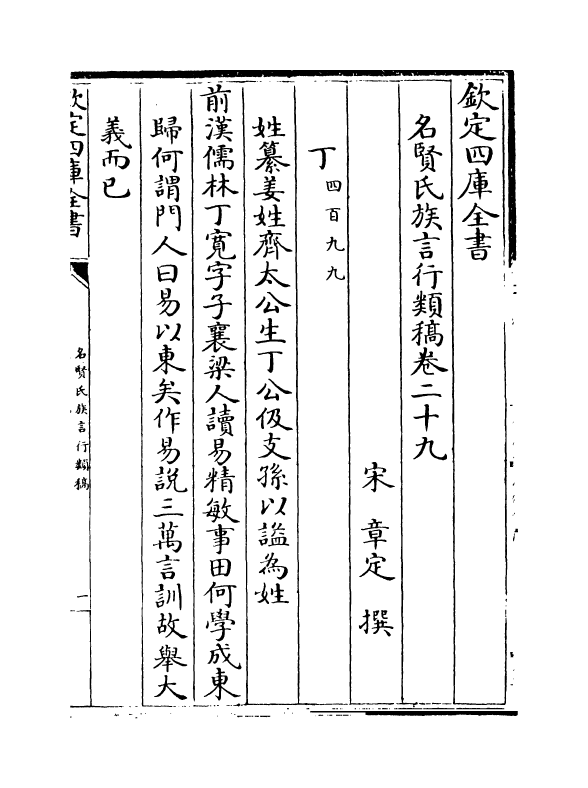 欽定四庫全書
名賢氏族言行類稿卷二十九
宋 章定 撰
丁 四百九九
姓纂姜姓齊太公生丁公伋支孫以諡為姓
前漢儒林丁寛字子襄梁人讀易精敏事田何學成東
歸何謂門人曰易以東矣作易說三萬言訓故舉大
義而已
欽定四庫全書
名賢氏族言行類稿
一